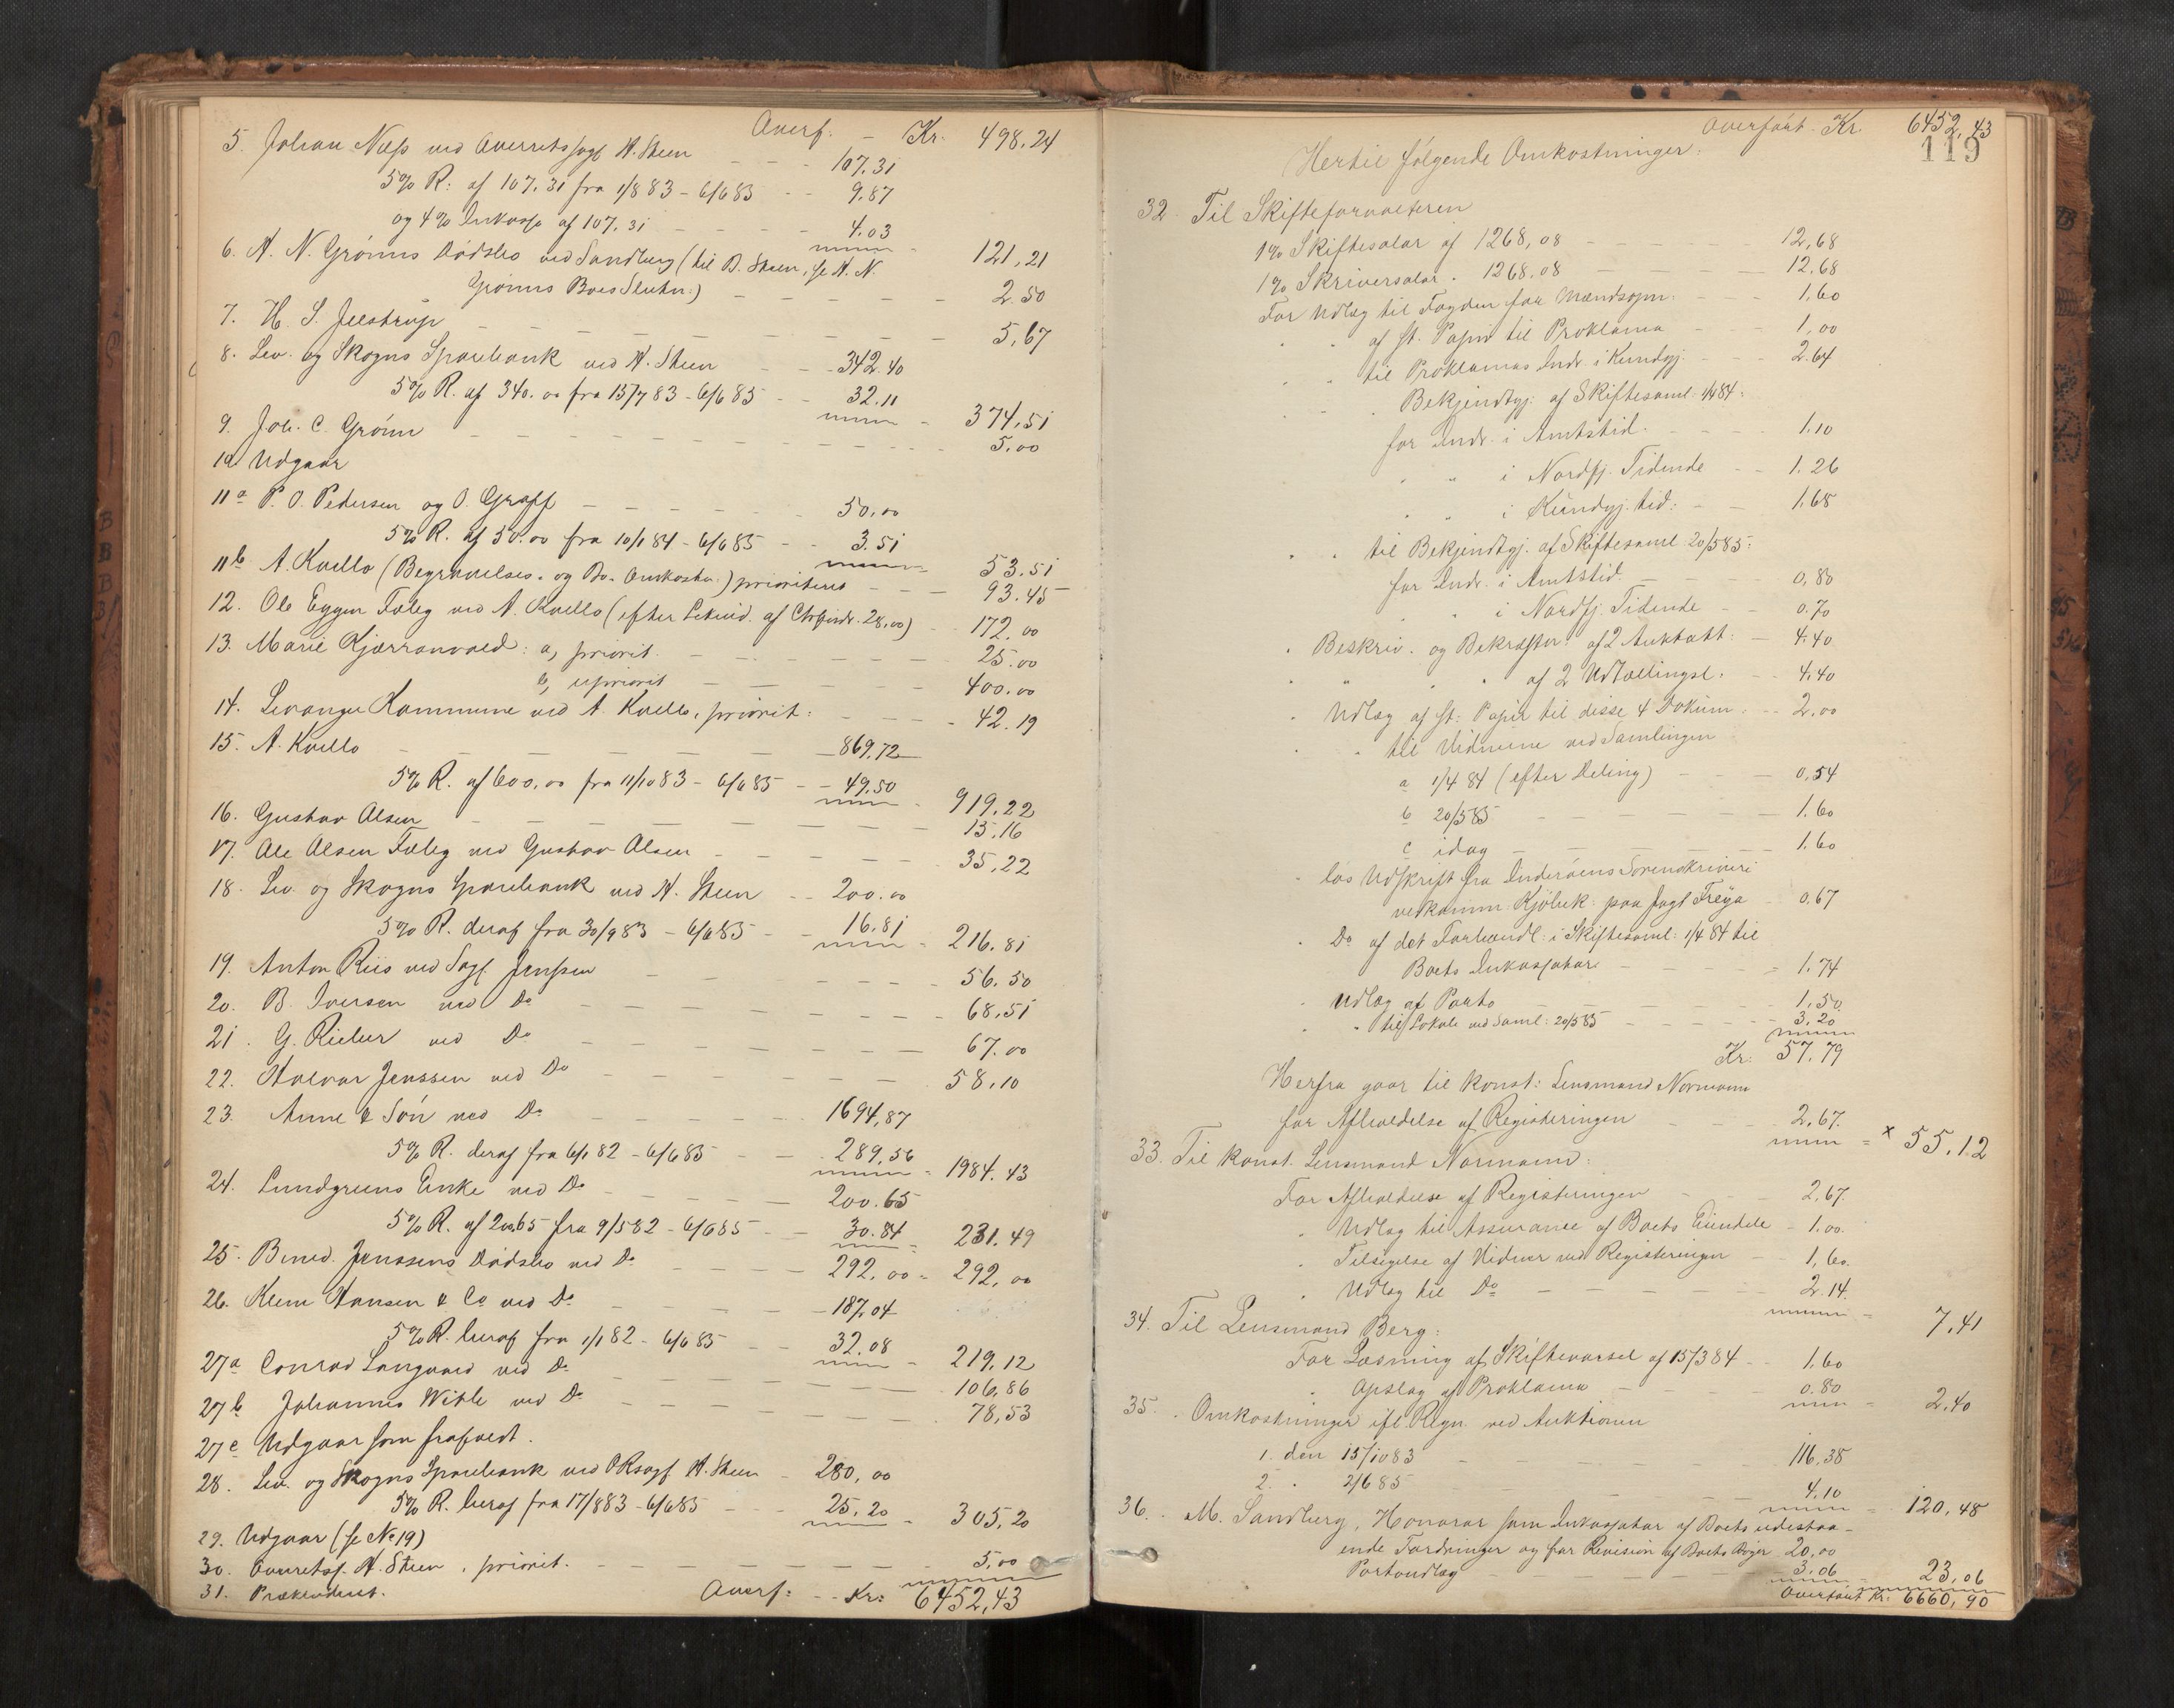 Overf. — Kr. 498.24
5. Johan Næss ved Overretssagf. A. Steen - - - 107.31
5% R: af 107.31 fra 1/8 83 - 6/6 85 - - 9.87
og 4% Inkasso af 107.31 - - - 4.03
121,21
6. A. N. Grønns Dødsbo ved Sandberg (til B. Steen, se A. N.
Grønns Boes Slutn:) - - - - - 2.50
7. H. S. Jelstrup - - - - - 5,67
8. Lev. og Skogns Sparebank ved A. Steen - - 342.40
5% R. af 340.00 fra 15/7 83 - 6/6 85 - - 32.11
374,51
9. Joh. C. Grønn - - - - - 5,00
10. Udgaar
11a P. O. Pedersen og O. Graff - - - - 50,00
5% R. af 50.00 fra 10/1 84 - 6/6 85 - - 3.51
53.51
11b A. Kvello (Begravelses- og Bo- Omkostn.) prioriteres - - - 93.45
12. Ole Eggen Fæby ved A. Kvello (efter Lekvid. af Ctrfordr. 28,00) - 172.00
13. Marie Kjærranvald: a, priorit. - - - - 25.00
b, upriorit - - - - 400.00
14. Levanger Kommune ved A. Kvello, priorit: - - - - 42.19
15. A. Kvello - - - - - 869.72
5% R. af 600,00 fra 11/10 83 - 6/6 85 - - 49,50
919,22
16. Gustav Olsen - - - - - 15,16
17. Ole Olsen Fæby ved Gustav Olsen - - - - 35,22
18. Lev. og Skogns Sparebank ved A. Steen - - 200.00
5% R. deraf fra 30/9 83 - 6/6 85 - - 16.81
216.81
19. Anton Riis ved Sagf. Jenssen - - - - 56.50
20. B. Iversen ved Do - - - - 68,51
21. G. Rieber ved Do - - - - 67.00
22. Halvor Jenssen ved Do - - - - 58,10
23. Anne & Søn ved Do - - - - 1694,87
5% R. deraf fra 6/1 82 - 6/6 85 - - 289,56
1984.43
24. Lundgreens Enke ved Do - - - - 200.65
5% R. af 200.65 fra 9/5 82 - 6/6 85 - - 30.84
231.49
25. Bened. Jenssens Dødsbo ved Do - - - - 292,00 - 292,00
26. Klem Hansen & Co ved Do - - - - 187.04
5% R. heraf fra 1/1 82 - 6/6 85 - - 32.08
219,12
27a Conrad Langaard ved Do - - - - 106,86
27b Johannes Wible ved Do - - - - 78,53
27c Udgaar som frafaldt.
28. Lev. og Skogns Sparebank ved ORsagf. A. Steen - 280,00
5% R. heraf fra 17/8 83 - 6/6 85 - - 25,20
305,20
29. Udgaar (se No 19)
30. Overretss. A. Steen, priorit. - - - - 5,00
31. Prækluderet.
Overf: - - Kr: 6452,43
Overført Kr. 6452,43
119
Hertil følgende Omkostninger:
32. Til Skifteforvalteren
1% Skiftesalær af 1268,08 - - - 12,68
1% Skriversalær - 1268,08 - - - 12,68
For Udlæg til Fogden for Mændsopn: - - 1,60
" " af st. Papir til Proklama - - 1,00
" " til Proklamas Indr. i Kundgj. - - 2.64
" " " Bekjendtgj. af Skiftesaml. 1/4 84:
for Indr. i Amtstid. - - - 1.10
" " i Nordfj. Tidende - - 1.26
" " i Kundgj. tid: - - 1,68
" " til Bekjendtgj. af Skiftesaml. 20/5 85:
for Indr. i Amtstid. - - - 0,80
" i Nordfj. Tidende - - 0.70
" Beskriv. og Bekræftn: af 2 Auktatt: - 4.40
" " " " af 2 Udtællingsl. - - 4.40
" Udlæg af st: Papir til disse 4 Dokum: - - 2,00
" " til Vidnerne ved Samlingen
a 1/4 84 (efter Deling) - - - 0,54
b 20/5 85 - - - 1.60
c idag - - - 1.60
" løs Udskrift fra Inderøens Sorenskriveri
vedkomm. Kjøbek: paa Jagt Freya - 0.67
" Do af det Forhandl: i Skiftesaml: 1/4 84 til
Boets Inkassator - - - 1.74
" Udlæg af Porto - - - 1,50
" " til Lokale ved Saml: 20/5 85 - - - 3.20
Kr: 57,79
Herfra gaar til konst: Lensmand Normann
for Afholdelse af Registeringen - - - 2,67.
x 55.12
33. Til konst. Lensmand Normann:
For Afholdelse af Registeringen - - 2,67.
" Udlæg til Assurance af Boets Eiendele - 1.00.
" Tilsigelse af Vidner ved Registeringen - 1,60.
" Udlæg til Do - - - - 2.14.
7,41
34. Til Lensmand Berg:
For Læsning af Skiftevarsel af 15/3 84 - - 1.60
" Opslag af Proklama - - - 0.80
2,40
35. Omkostninger ifl. Regn. ved Auktionen
1. den 15/10 83 - - - 116.38
2. " 2/6 85 - - - 4.10
120,48
36. M. Sandberg, Honorar som Inkassator af Boets udestaa-
ende Fordringer og for Revision af Boets Bøger 20,00
Portoudlæg - - - 3,06
23,06
Overført Kr: 6660,90